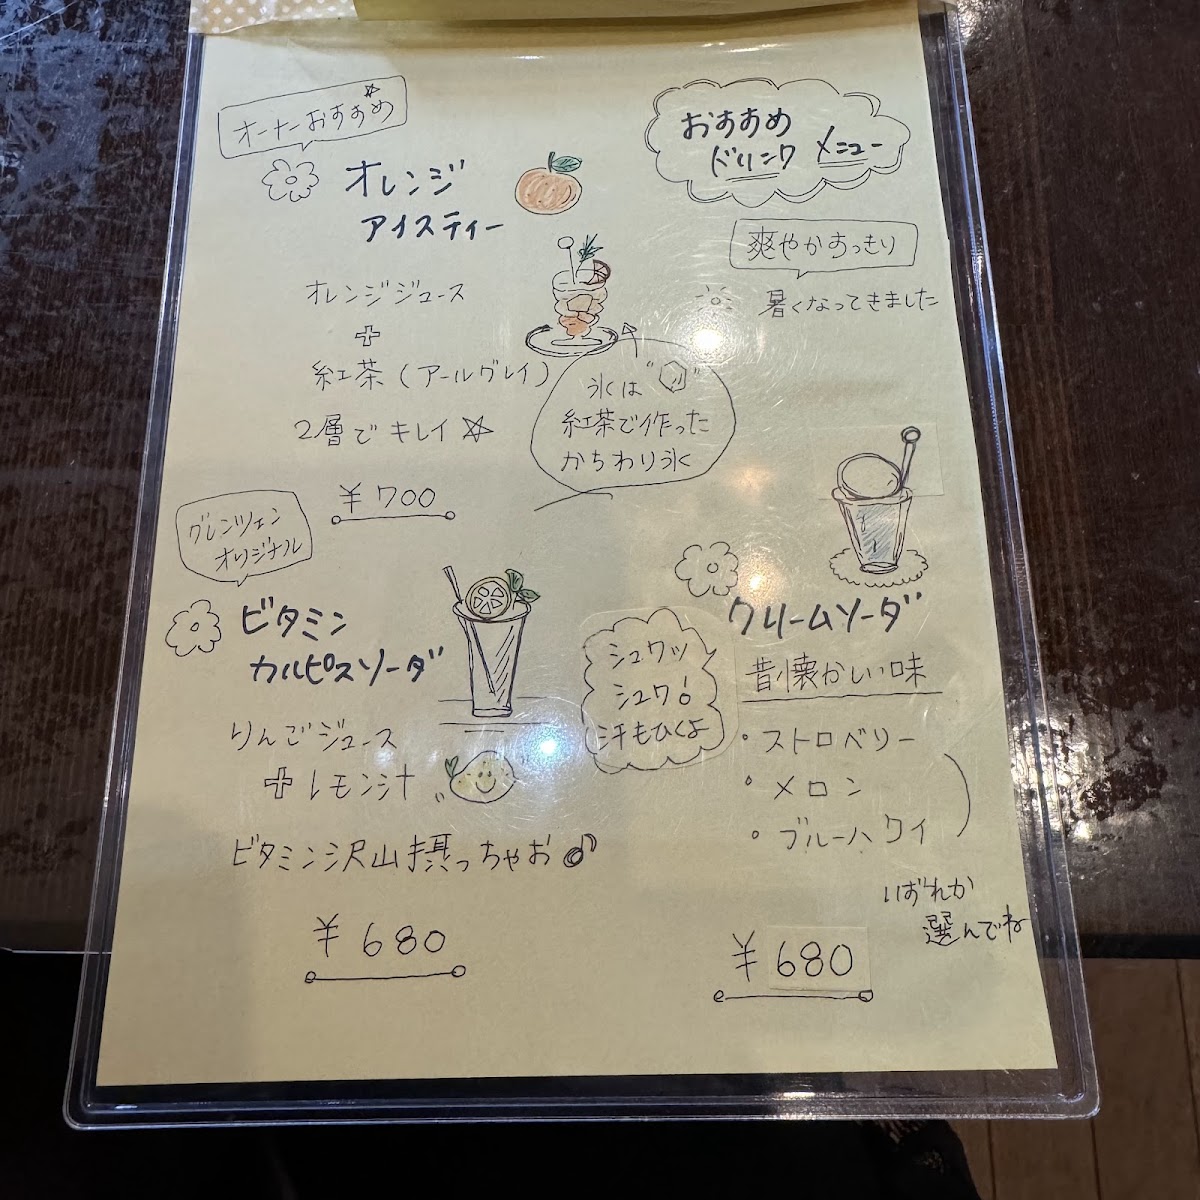 オーナーおすすめ
オレンジ
アイスティー
オレンジジュース
+
紅茶(アールグレイ)
2層でキレイ☆
¥700
氷は
紅茶で作った
かちわり氷
おすすめ
ドリンク メニュー
爽やかすっきり
暑くなってきました
グレンツェン
オリジナル
ビタミン
カルピスソーダ
りんごジュース
+レモン汁
ビタミン沢山摂っちゃお♪
¥680
シュワッ
シュワ!
汗もひくよ
クリームソーダ
昔懐かしい味
・ストロベリー
・メロン
・ブルーハワイ
いずれか
選んでね
¥680